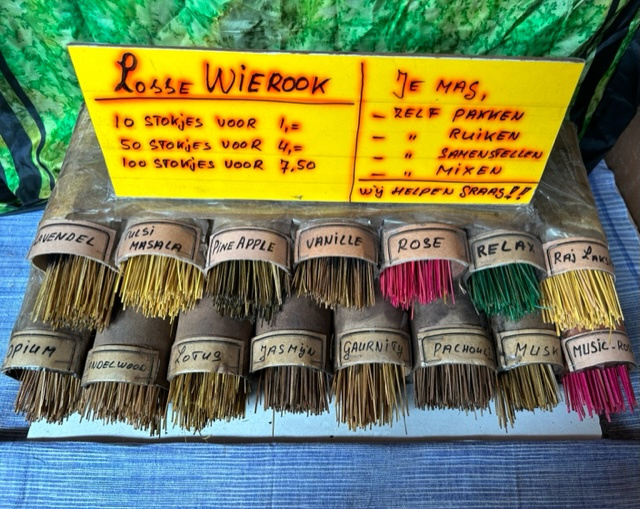 Losse WIEROOK
10 STOKJES VOOR 1,=
50 STOKJES VOOR 4,=
100 STOKJES VOOR 7,50
JE MAG,
- ZELF PAKKEN
- " RUIKEN
- " SAMENSTELLEN
- " MIXEN
WIJ HELPEN GRAAG!!
TULSI
MASALA
PINEAPPLE
VANILLE
ROSE
RELAX
RAJ
LOTUS
JASMIJN
GAURNITA
MUSK